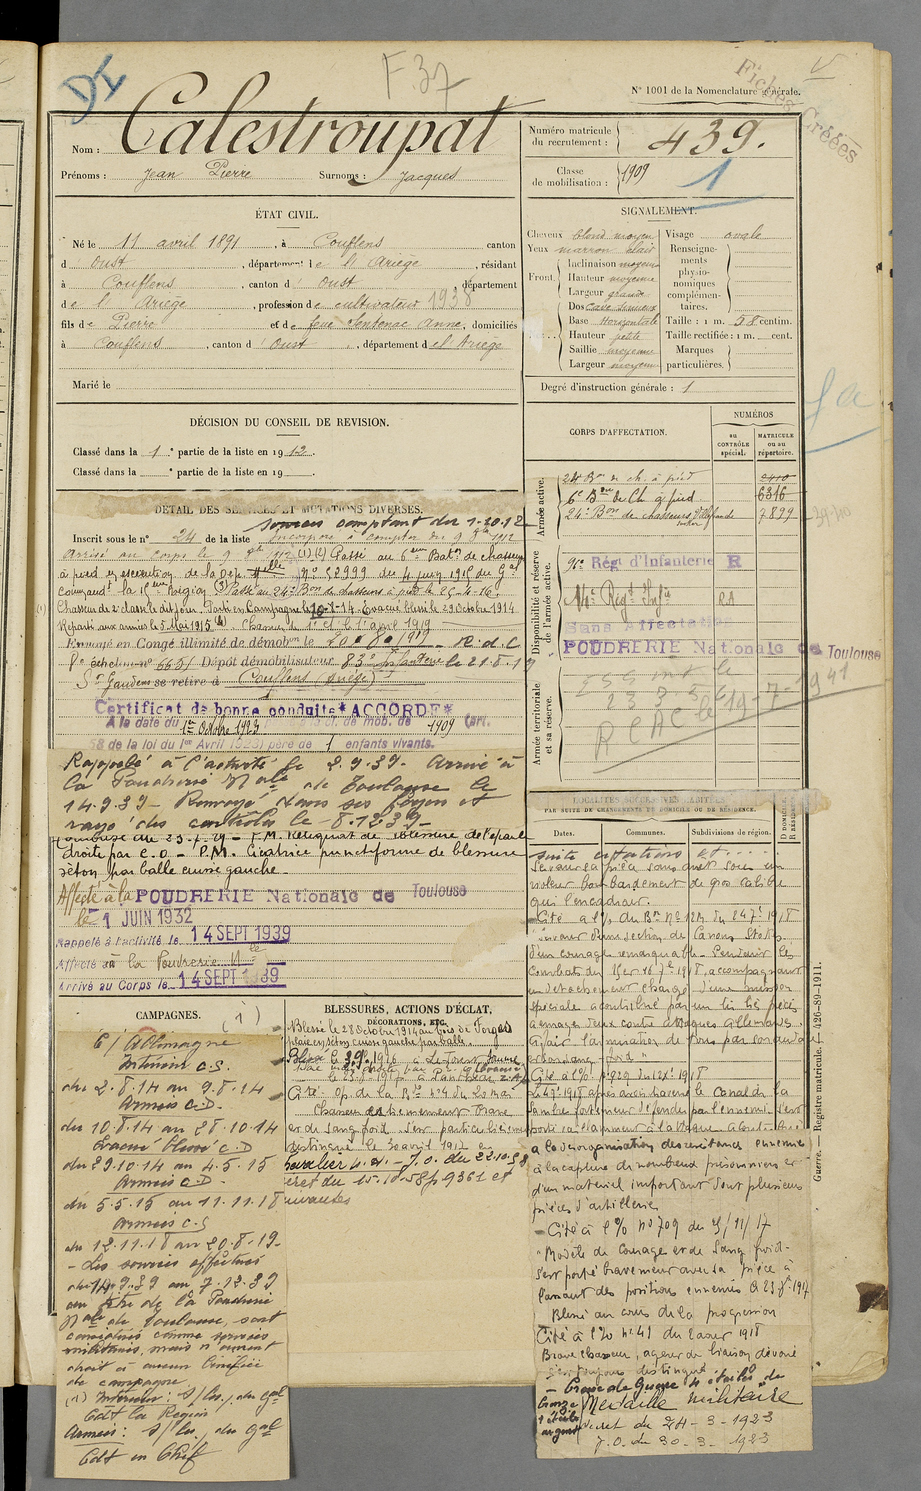 DI
F.37
V
Fiches Créées
N° 1001 de la Nomenclature générale.
Nom : Calestroupat
Prénoms : Jean Pierre Surnoms : Jacques
Numéro matricule du recrutement : 439.
Classe de mobilisation : 1909
1
ÉTAT CIVIL.
Né le 11 avril 1891, à Couflens canton
d Oust, département de l'Ariège, résidant
à Couflens, canton d' Oust département
de l'Ariège, profession de cultivateur 1938
fils de Pierre et de feue Sentenac Anne, domiciliés
à Couflens, canton d'Oust, département de l'Ariège
Marié le
SIGNALEMENT.
Cheveux blond moyen
Yeux marron clair
Front
Inclinaison moyenne
Hauteur moyenne
Largeur grande
Dos
Base Horizontale
Hauteur petite
Saillie moyenne
Largeur moyenne
Visage ovale
Renseignements physionomiques complémentaires.
Taille : 1 m. 58 centim.
Taille rectifiée : 1 m. cent.
Marques particulières.
Degré d'instruction générale : 1
DÉCISION DU CONSEIL DE REVISION.
Classé dans la 1e partie de la liste en 1912.
Classé dans la e partie de la liste en 19
DÉTAIL DES SERVICES ET MUTATIONS DIVERSES.
services comptant du 1-10-12
Inscrit sous le n° 24 de la liste Incorporé à compter du 9 8bre 1912
Arrivé au corps le 9 8bre 1912 (1) (2) Passé au 6ème Batn de chasseurs
à pied en exécution de la Dép. Mlle N° 52999 du 4 juin 1915 du Gal
Command' la 15ème Région (3) Passé au 24e Bon de chasseurs à pied le 25-4-16.
Chasseur de 2e classe le dit jour. Parti en Campagne le 10-8-14. Evacué blessé le 29 Octobre 1914
Reparti aux armées le 5 Mai 1915 (4). Chasseur de 1e cl. le 1er avril 1919
Envoyé en Congé illimité de démobon le 20-8-1919 R.d.C
échelon n° 665 / Dépôt démobilisateur 83e Infanterie le 21.8.19
St Gaudens se retire à Couflens (Ariège)
Certificat de bonne conduite *ACCORDÉ*
A la date du 1er Octobre 1923 cl. de mob. de 1909 (art.
58 de la loi du 1er Avril 1923) père de 1 enfants vivants.
Rappelé à l'activité le 2.9.39. Arrivé à
la Poudrerie Nale de Toulouse le
14.9.39 - Renvoyé dans ses foyers et
rayé des contrôles le 8.12.39 -
Toulouse du 23-7-29 - P.M. Reliquat de blessure de l'épaule
droite par e.o - P.M. Cicatrice punctiforme de blessure
séton par balle cuisse gauche -
Affecté à la POUDRERIE Nationale de Toulouse
le 1 JUIN 1932
Rappelé à l'activité le 14 SEPT 1939
Affecté à la Poudrerie Nle
Arrivé au Corps le 14 SEPT 1939
CORPS D'AFFECTATION.
NUMÉROS
au CONTRÔLE spécial.
MATRICULE ou au répertoire.
Armée active.
24 Bon de ch. à pied 2410
6e Bon de Ch. à pied. 6316
24e Bon de chasseurs 7899
Disponibilité et réserve de l'armée active.
91e Régt d'Infanterie R
14e Régt Infie RA
Sans affectation
POUDRERIE Nationale de Toulouse
Armée territoriale et sa réserve.
RCAC le 19-7-1941
LOCALITÉS SUCCESSIVES HABITÉES
PAR SUITE DE CHANGEMENTS DE DOMICILE OU DE RÉSIDENCE.
D DOMICILE R RÉSIDENCE
Dates. Communes. Subdivisions de région.
suite citations et
Servant sa pièce sans arrêt sous un
violent bombardement de gros calibre
qui l'encadrait.
- Cité à l'o/ du Bon N° 124 du 24 7e 1918
d'une section de Canons Stokes
d'un courage remarquable. Pendant les
combats du 15 et 16 7e 1918, accompagnant
un détachement chargé d'une mission
spéciale a contribué par un tir très précis
à enrayer deux contre attaques allemandes.
sang-froid"
Cité à l'o/ n° 929 du 12 Xe 1918
Le 4 9e 1918 après avoir traversé le Canal de la
Sambre fortement défendu par l'ennemi s'est
porté vaillamment à l'attaque a contribué
à la désorganisation des résistances ennemies
à la capture de nombreux prisonniers et
d'un matériel important dont plusieurs
pièces d'artillerie
- Cité à l'o/o n° 709 du 5/11/17
"Modèle de Courage et de Sang froid -
S'est porté bravement avec sa pièce à
l'assaut des positions ennemies le 23 8e 1917
Blessé au cours de la progression
Cité à l'o/o n° 41 du 1 aout 1918
Brave chasseur, agent de liaison dévoué
s'est toujours distingué -
- Croix de Guerre 4 étoiles de
bronze 1 étoile argent
Médaille Militaire
décret du 24-3-1923
J.O. du 30-3-1923
CAMPAGNES.
(1)
C/ Allemagne
Intérieur C.S.
du 2.8.14 au 9.8.14
Armées C.D.
du 10.8.14 au 28.10.14
Evacué blessé C.D
du 29.10.14 au 4.5.15
Armées C.D -
du 5.5.15 au 11.11.18
Armées C.S
du 12.11.18 au 20.8.19 -
- Les services effectués
du 14.9.39 au 7.12.39
au titre de la Poudrerie
Nale de Toulouse, sont
considérés comme services
militaires, mais n'ouvrent
droit à aucun bénéfice
de campagne
(1) Intérieur : s/ les du gal
Cdt la Région
Armées : s/ les du gal
Cdt en Chef
BLESSURES, ACTIONS D'ÉCLAT, DÉCORATIONS, ETC.
Blessé le 28 Octobre 1914 au bois de Forges
plaie en séton cuisse gauche par balle.
Blessé le 3.9.1916 à Le Forest Somme
Cité Op. de la Bde n° 4 du 20 mai
Chasseur extrêmement brave
et de sang froid. S'est particulièrement
distingué le 30 avril 1917
Chevalier L.H. - J.O. du 22.10.58
décret du 15.10.58 p 9561 et
suivantes
Guerre. Registre matricule. 426-89-1911.